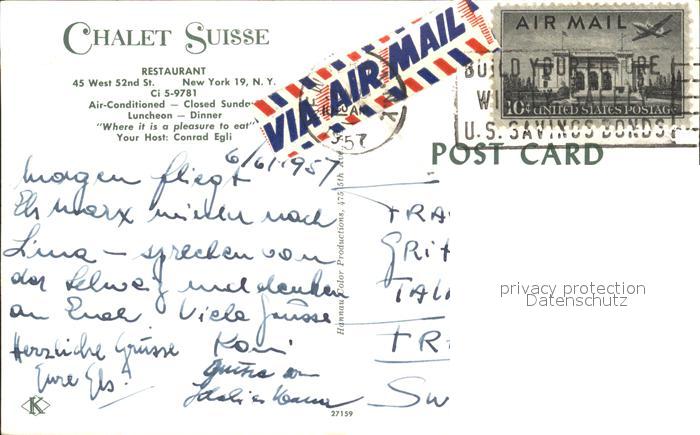 CHALET SUISSE
RESTAURANT
45 West 52nd St. New York 19, N. Y.
Ci 5-9781
Air-Conditioned — Closed Sunday
Luncheon — Dinner
"Where it is a pleasure to eat"
Your Host: Conrad Egli
VIA AIR MAIL
1957
AIR MAIL
10¢ UNITED STATES POSTAGE
BUILD YOUR FUTURE
WI
U.S. SAVINGS BONDS
POST CARD
6/6/1957
morgen fliegt
Marx wieder nach
Lima — sprechen von
der Schweiz und denken
an Euch Viele Grüsse
Herzliche Grüsse Koni
Eure Els!
Hannau Color Productions, 475 5th Ave
TRA
GRI
TAL
TR
SW
K
27159
privacy protection
Datenschutz